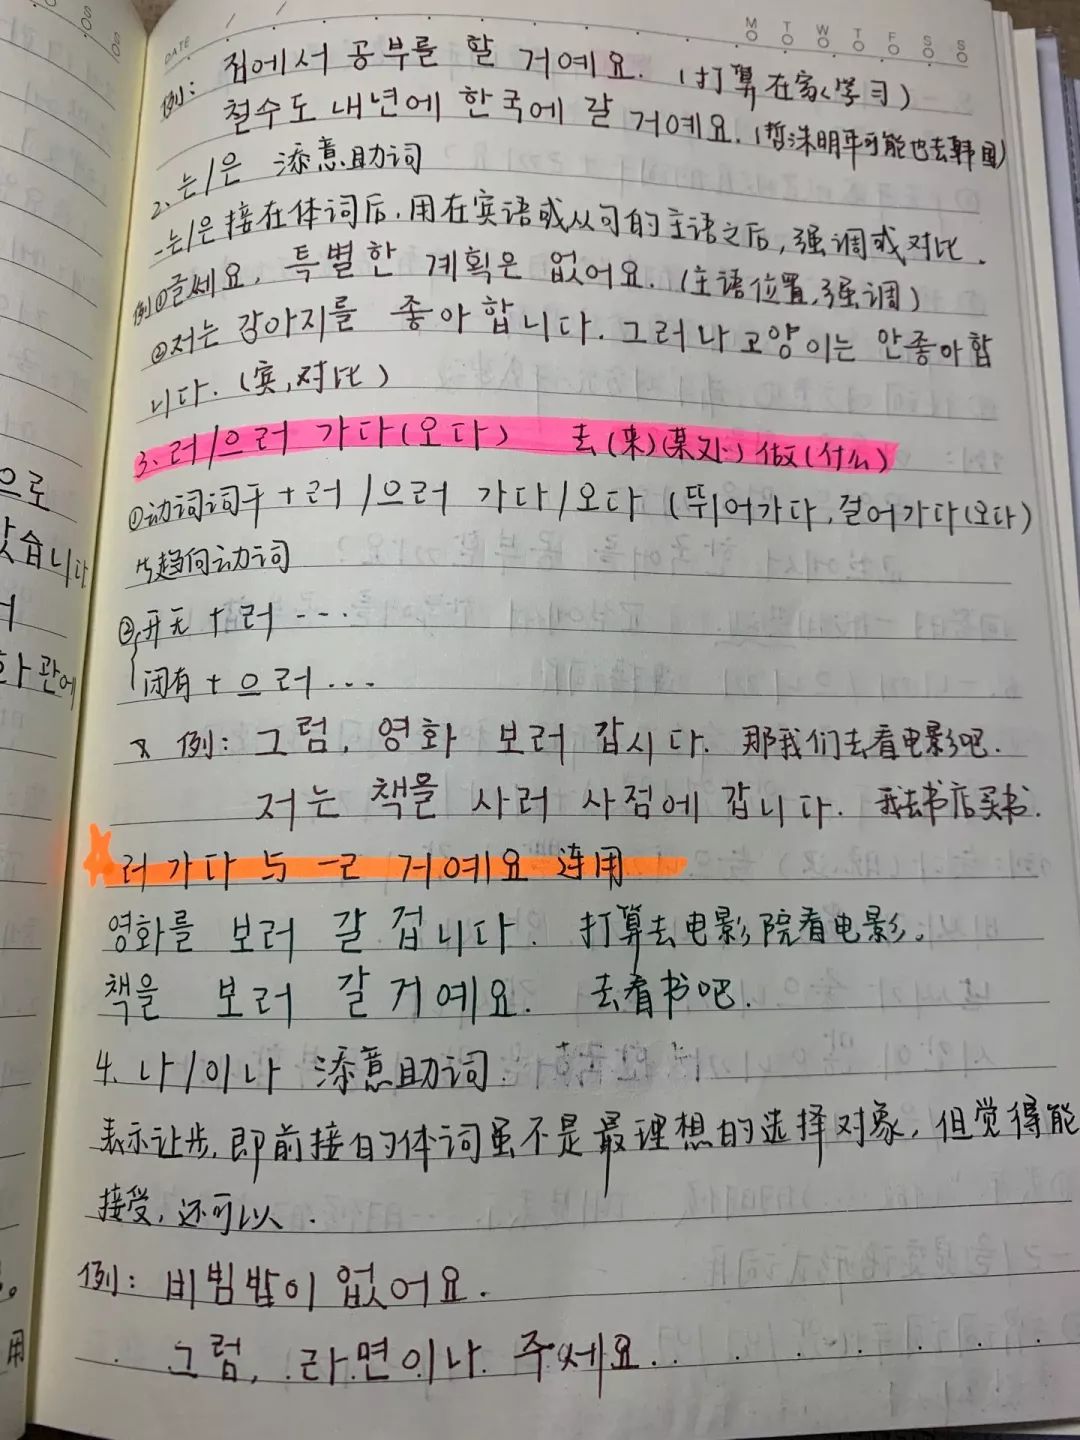 DATE
M T W T F S S
例: 집에서 공부를 할 거예요. (打算在家学习)
철수도 내년에 한국에 갈 거예요. (哲洙明年可能也去韩国)
2、는/은 添意助词
-는/은接在体词后, 用在宾语或从句的主语之后, 强调或对比.
例①글쎄요, 특별한 계획은 없어요. (主语位置,强调)
②저는 강아지를 좋아합니다. 그러나 고양이는 안좋아합
니다. (宾,对比)
3、러/으러 가다(오다) 去(来)(某处)做(什么)
①动词词干+러/으러 가다/오다 (뛰어가다, 걸어가다(오다)
↳趋向动词
②开无+러...
闭有+으러...
例: 그럼, 영화 보러 갑시다. 那我们去看电影吧.
저는 책을 사러 사점에 갑니다. 我去书店买书.
러 가다 与 -ㄹ 거예요 连用
영화를 보러 갈 겁니다. 打算去电影院看电影。
책을 보러 갈 거예요. 去看书吧.
4、나/이나 添意助词.
表示让步, 即前接的体词虽不是最理想的选择对象, 但觉得能
接受, 还可以.
例: 비빔밥이 없어요.
그럼, 라면이나 주세요.
SOS
SOS
으로
았습니다
화관에
用